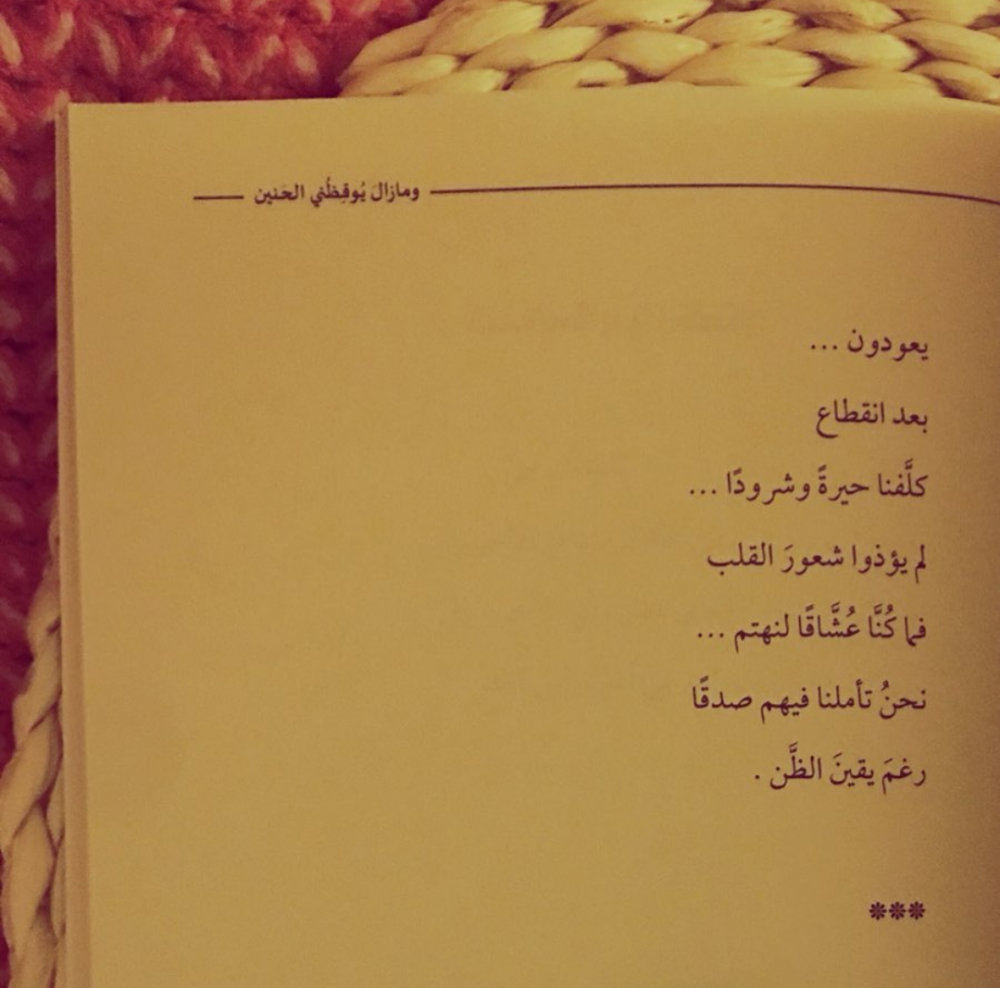 ومازالَ يُوقِظُني الحَنين
يعودون ...
بعد انقطاع
كلَّفنا حيرةً وشرودًا ...
لم يؤذوا شعورَ القلب
فما كُنَّا عُشَّاقًا لنهتم ...
نحنُ تأملنا فيهم صدقًا
رغمَ يقينَ الظَّن .
***